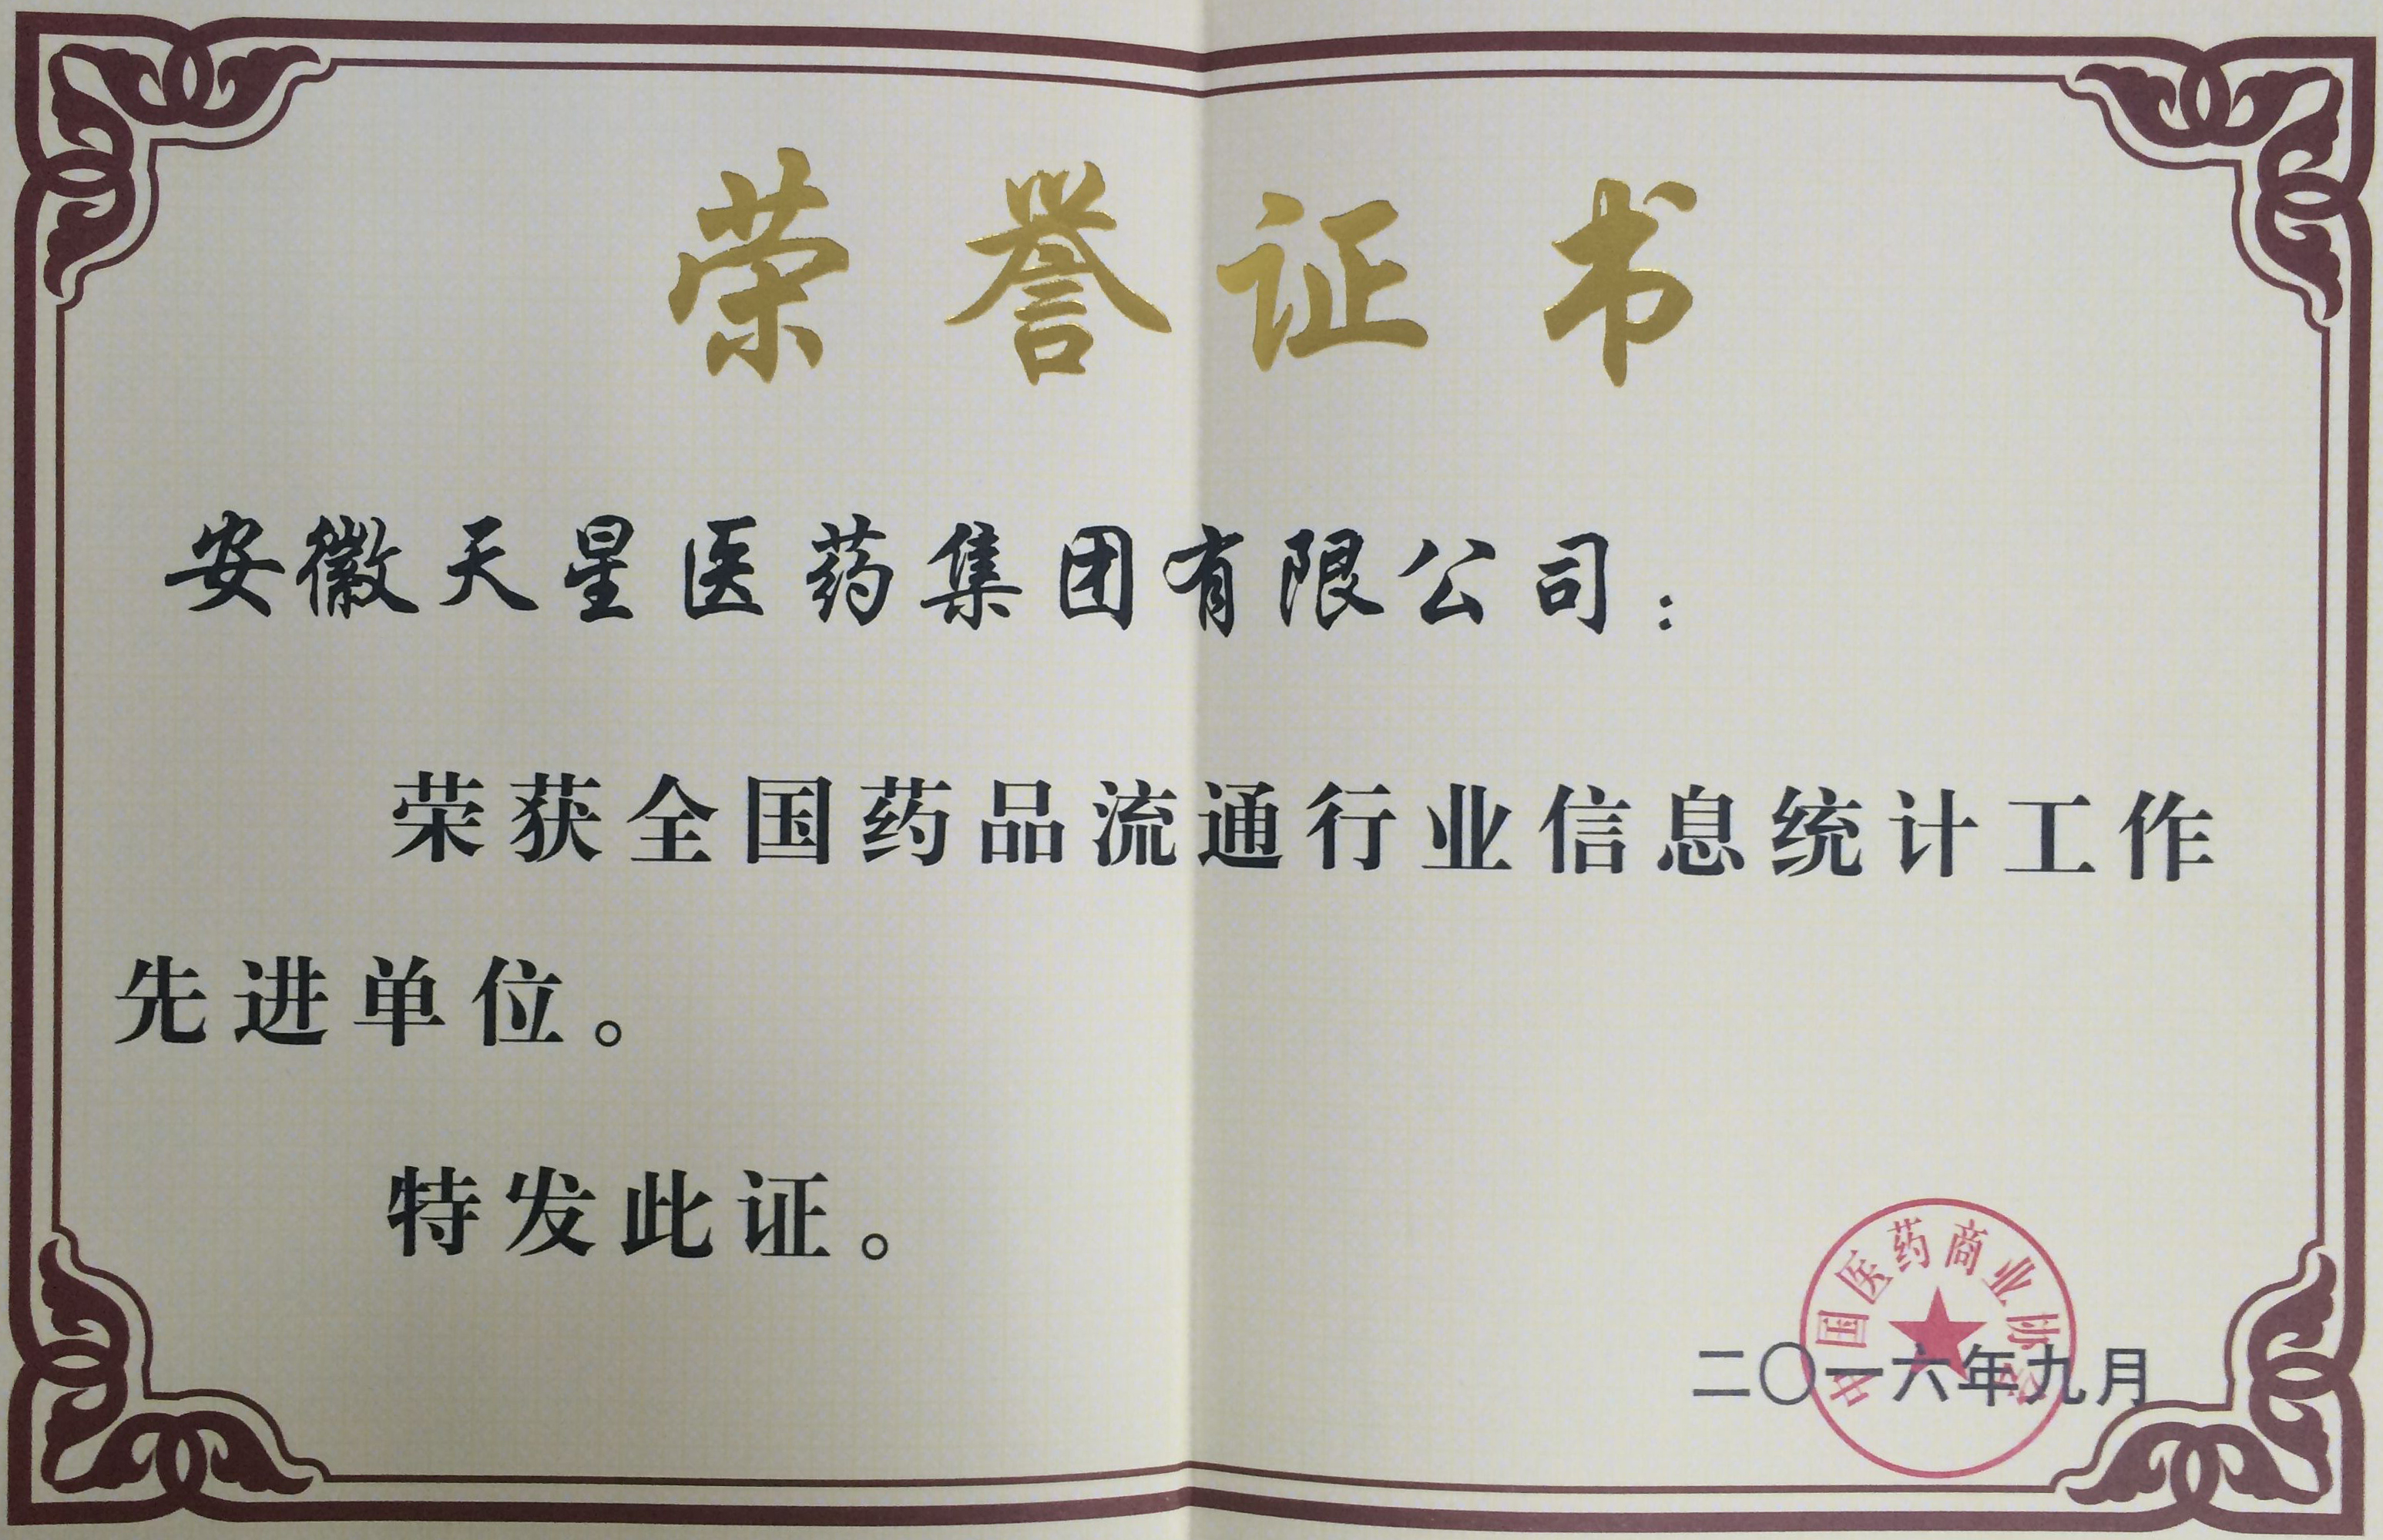 荣誉证书
安徽天星医药集团有限公司：
荣获全国药品流通行业信息统计工作
先进单位。
特发此证。
中国医药商业协会
二〇一六年九月